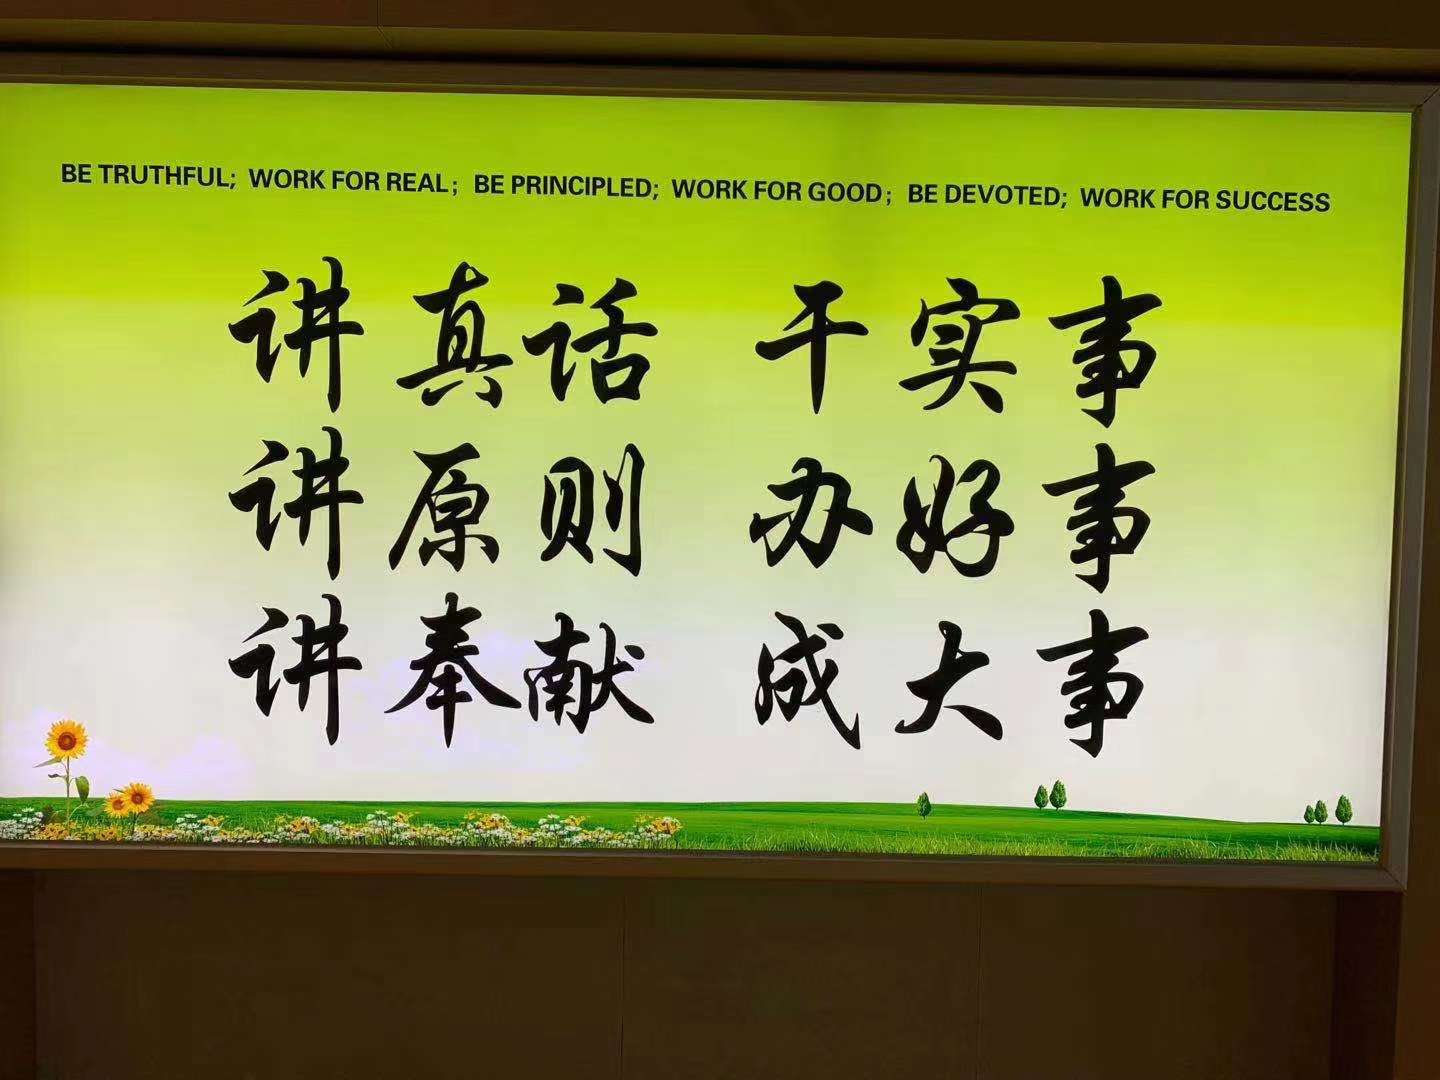 BE TRUTHFUL; WORK FOR REAL; BE PRINCIPLED; WORK FOR GOOD; BE DEVOTED; WORK FOR SUCCESS
讲真话 干实事
讲原则 办好事
讲奉献 成大事